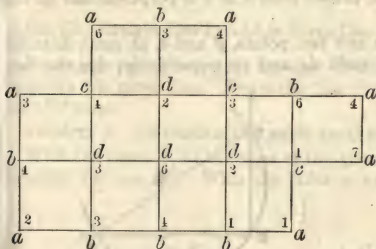 a b a
6 3 4
a c d c b a
3 4 2 3 6 4
b d d d 1 7 a
4 3 6 2 c
2 3 4 1 1
a b b b a